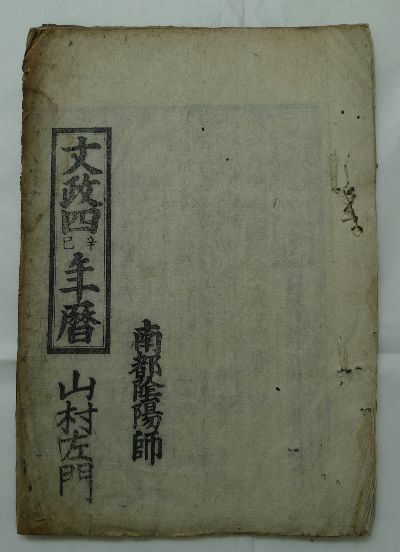 南都陰陽師
文政四辛巳年暦
山村左門